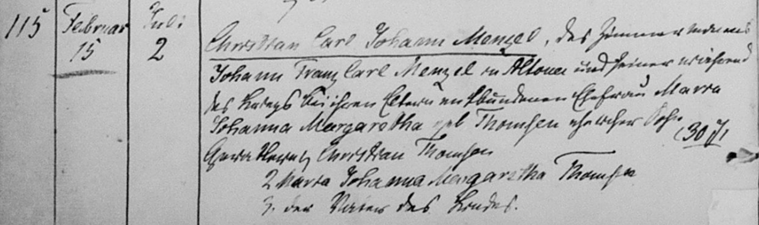 115 Februar 15 Juli 2 Christian Carl Johann Menzel, des Zimmermanns
Johann Franz Carl Menzel in Altona und seiner während
des Kriegs bei ihren Eltern entbundenen Ehefrau Maria
Johanna Margaretha geb Thomsen ehelicher Sohn
Christian Thomsen (30
2 Maria Johanna Margaretha Thomsen
3. der Vater des Kindes.